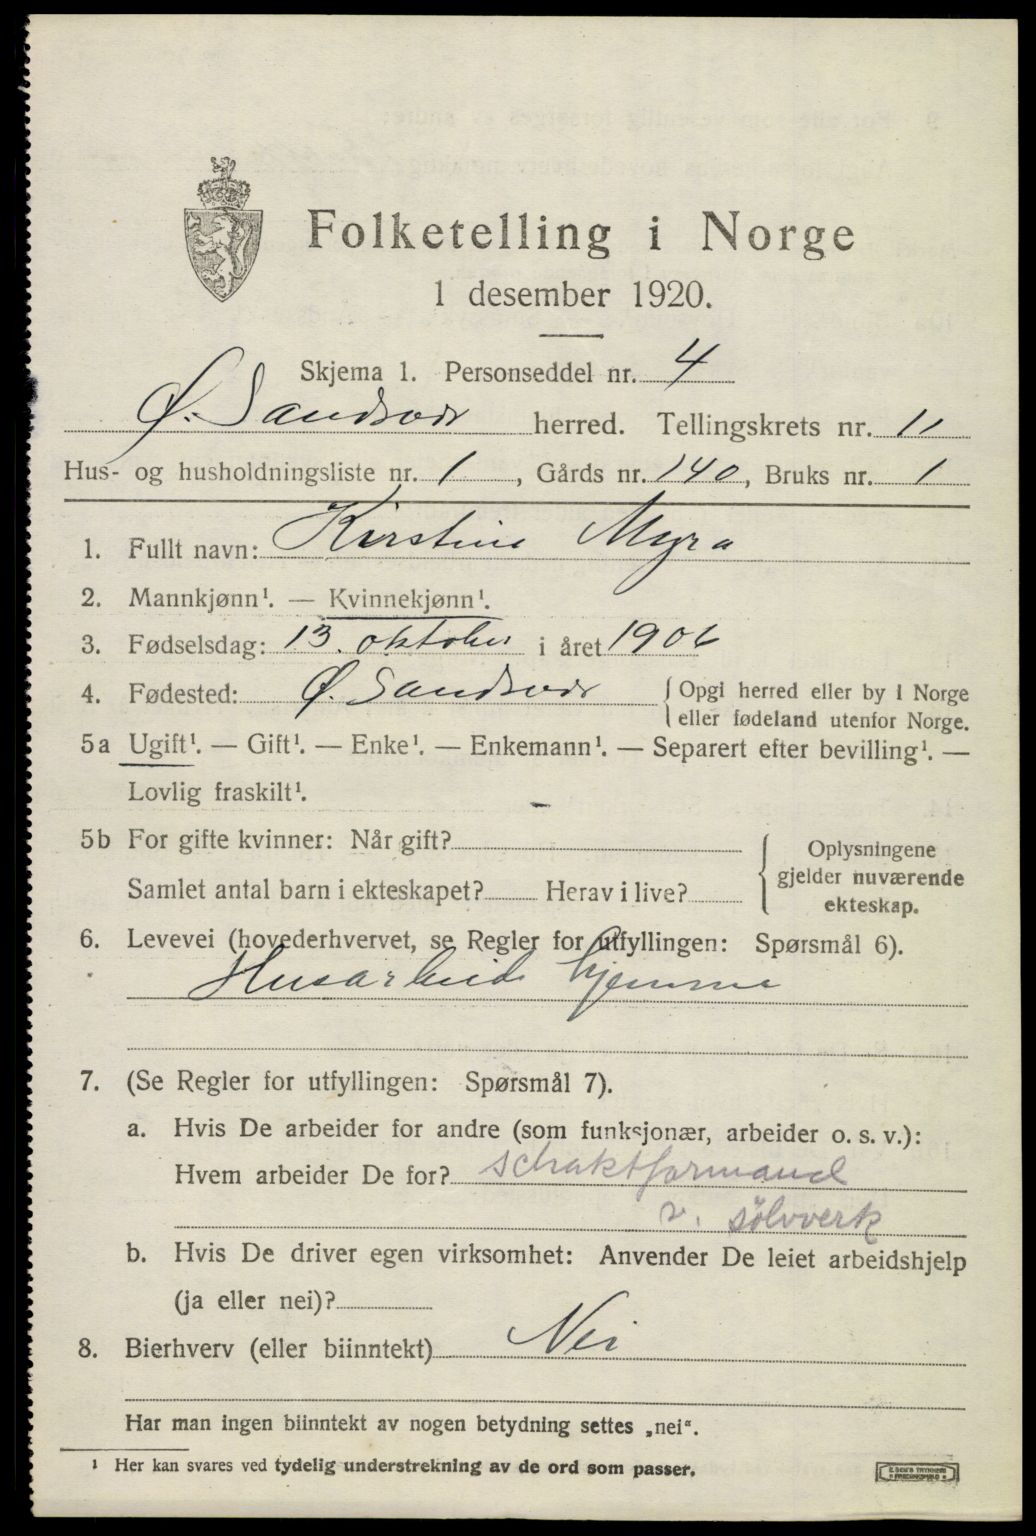 Folketelling i Norge
1 desember 1920.
Skjema 1. Personseddel nr. 4
Ø. Sandsvær herred. Tellingskrets nr. 11
Hus- og husholdningsliste nr. 1, Gårds nr. 140, Bruks nr. 1
1. Fullt navn: Kirstine Myra
2. Mannkjønn¹. — Kvinnekjønn¹.
3. Fødselsdag: 13. oktober i året 1906
4. Fødested: Ø. Sandsvær { Opgi herred eller by i Norge
eller fødeland utenfor Norge.
5a Ugift¹. — Gift¹. — Enke¹. — Enkemann¹. — Separert efter bevilling¹. —
Lovlig fraskilt¹.
5b For gifte kvinner: Når gift? { Oplysningene
gjelder nuværende
Samlet antal barn i ekteskapet? Herav i live? ekteskap.
6. Levevei (hovederhvervet, se Regler for utfyllingen: Spørsmål 6).
Husarbeide hjemme
7. (Se Regler for utfyllingen: Spørsmål 7).
a. Hvis De arbeider for andre (som funksjonær, arbeider o. s. v.):
Hvem arbeider De for? schaktformand
v. sölvverk
b. Hvis De driver egen virksomhet: Anvender De leiet arbeidshjelp
(ja eller nei)?
8. Bierhverv (eller biinntekt) Nei
Har man ingen biinntekt av nogen betydning settes „nei“.
¹ Her kan svares ved tydelig understrekning av de ord som passer.